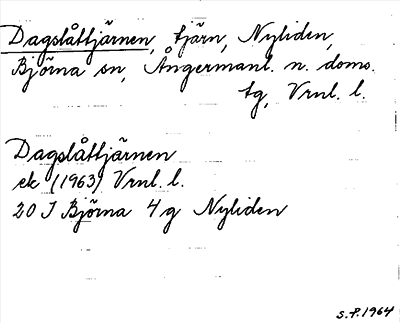 Dagslåttjärnen, tjärn, Nyliden,
Björna sn, Ångermanl. n. doms.
tg, Vrnl. l.
Dagslåttjärnen
ek (1963) Vrnl. l.
20 J Björna 4g Nyliden
S.P. 1964